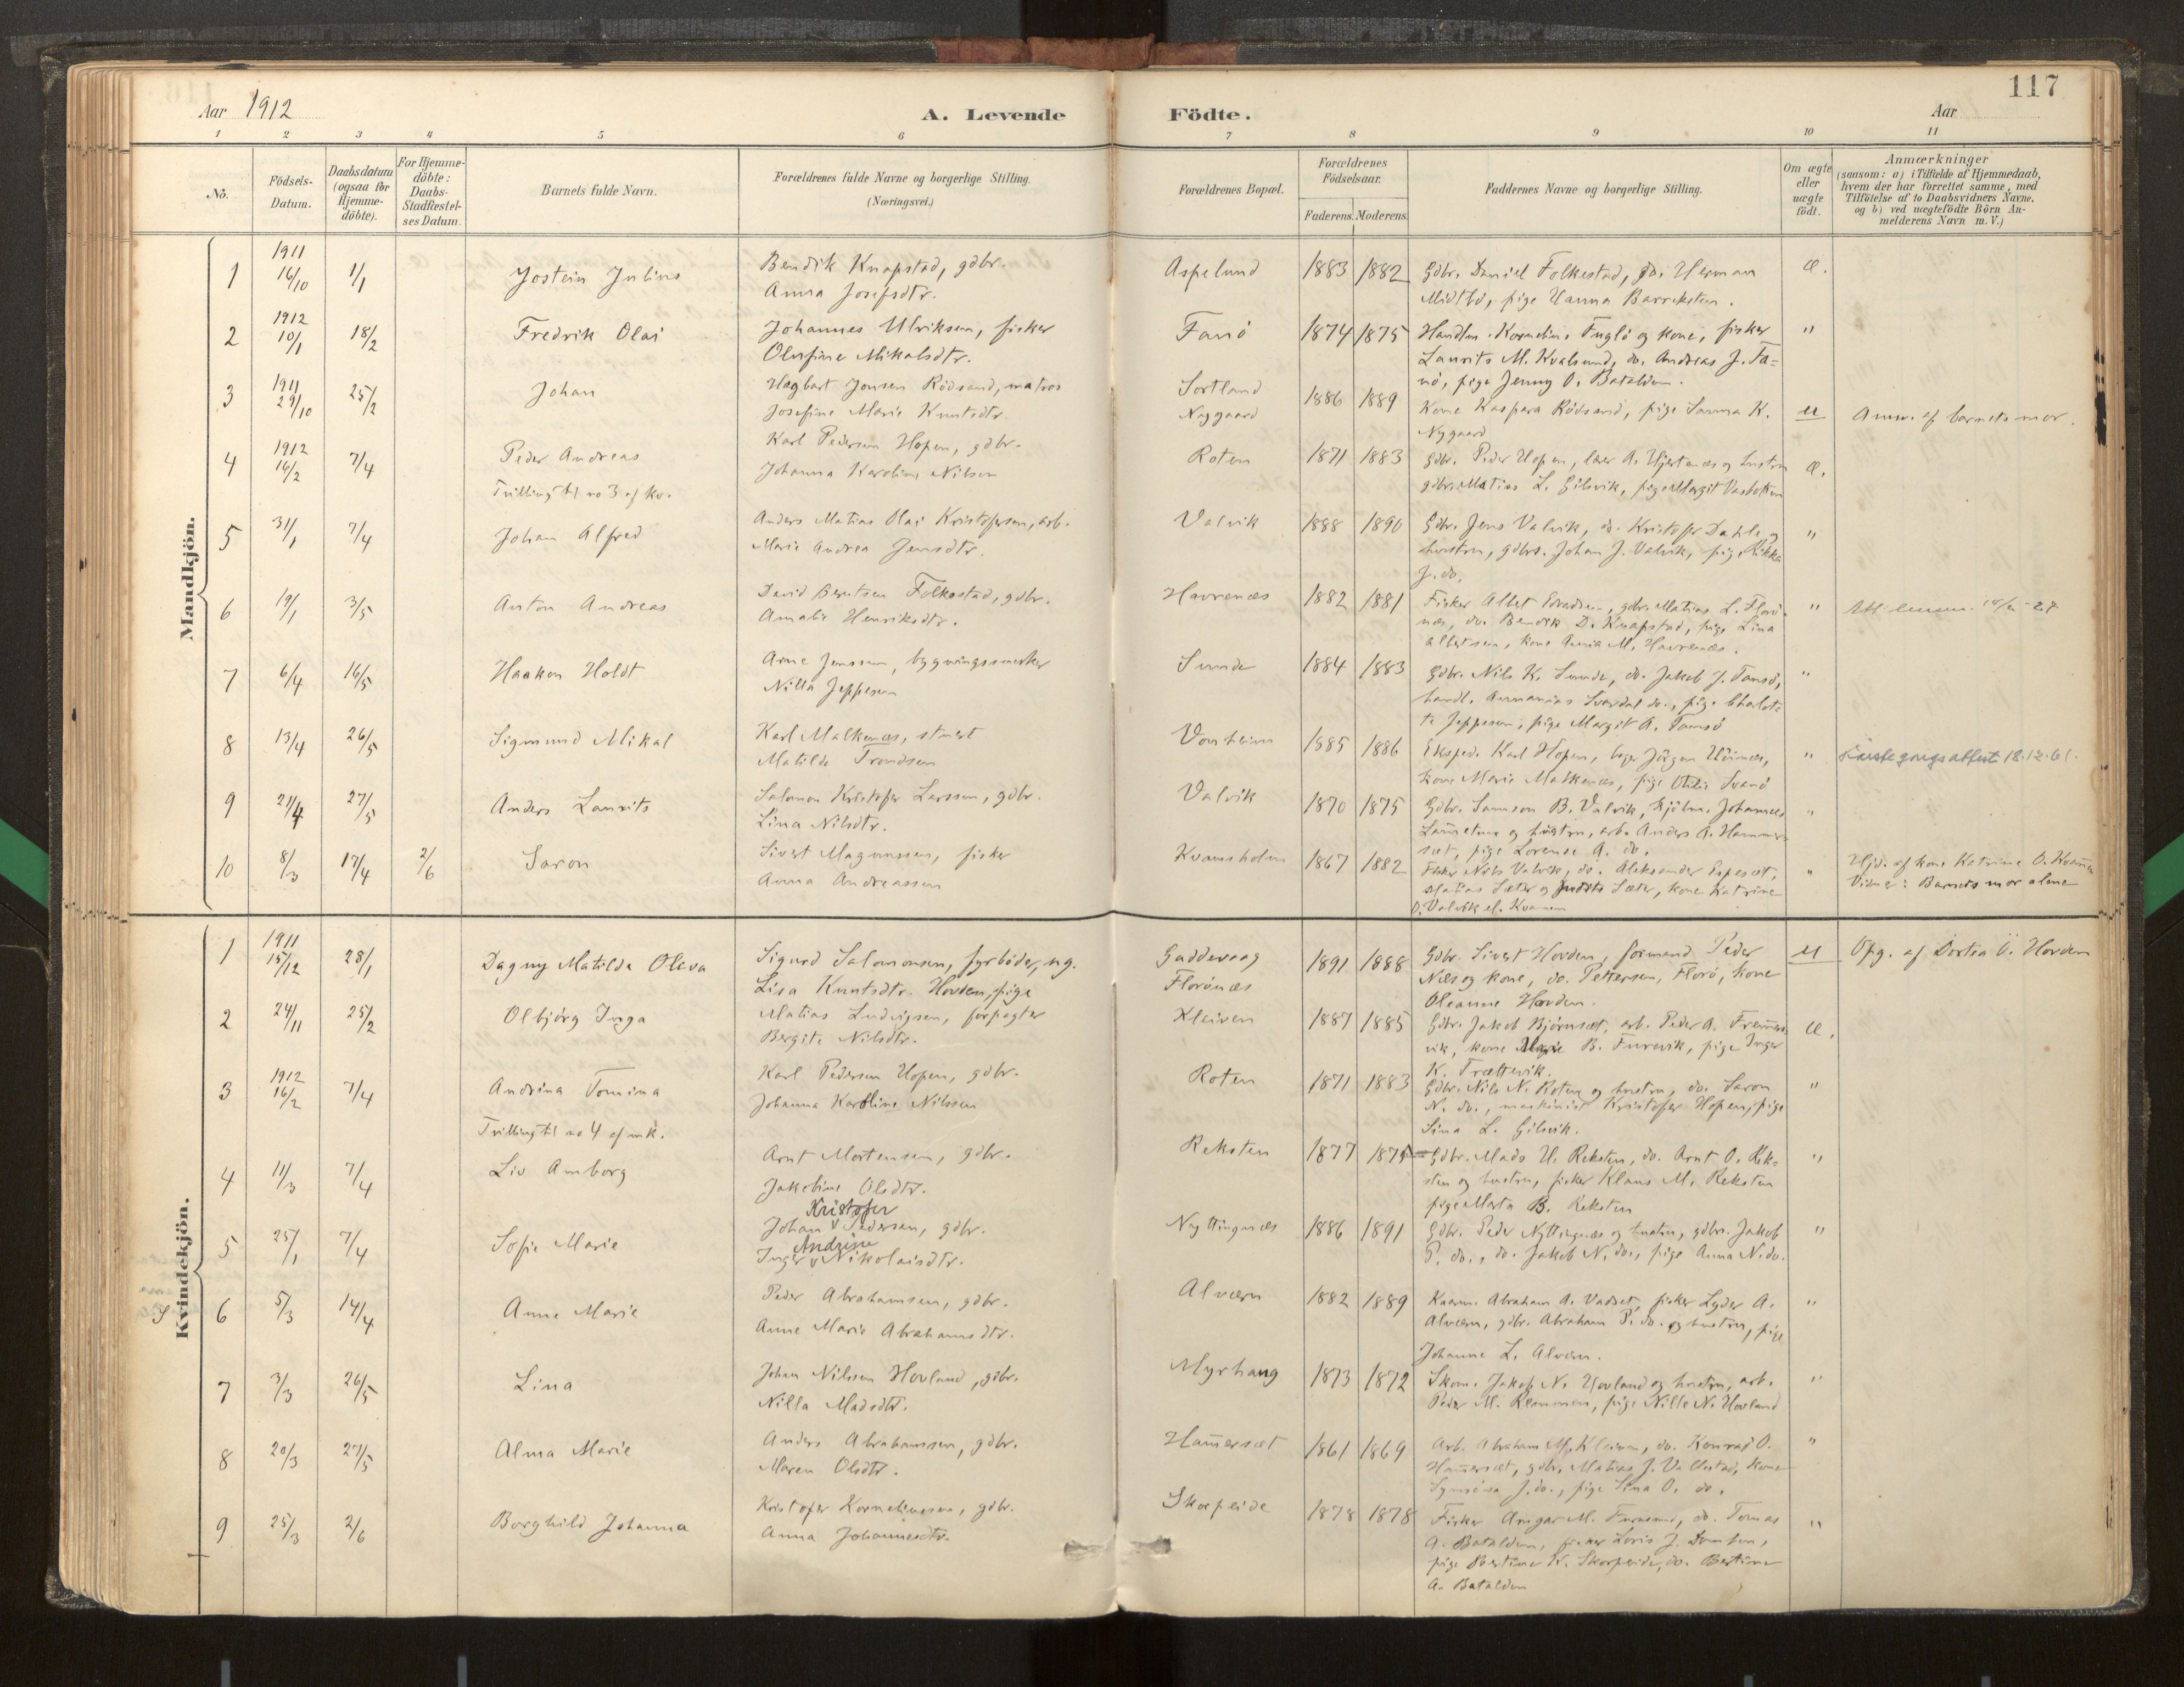 117
Aar 1912
A. Levende Födte.
Aar
1 2 3 4 5 6 7 8 9 10 11
No.
Födsels-Datum.
Daabsdatum (ogsaa for Hjemme-döbte).
For Hjemme-döbte: Daabs-Stadfæstel-ses Datum.
Barnets fulde Navn.
Forældrenes fulde Navne og borgerlige Stilling.
(Næringsvei.)
Forældrenes Bopæl.
Forældrenes Födselsaar.
Faderens. Moderens.
Faddernes Navne og borgerlige Stilling.
Om ægte eller uægte födt.
Anmærkninger
(saasom: a) i Tilfælde af Hjemmedaab, hvem der har forrettet samme, med Tilföielse af to Daabsvidners Navne, og b) ved uægtefödte Börn An-melderens Navn m. V.)
Mandkjön.
1 1911 16/10 1/1 Jostein Julius
Bendik Knapstad, gdbr.
Anna Josefsdtr.
Aspelund 1883 1882
Gdbr. Daniel Folkestad, do. Herman
Midtbö, pige Hanna Barreksten.
æ.
2 1912 10/1 18/2 Fredrik Olai
Johannes Ulriksen, fisker
Olufine Mikalsdtr.
Fanö 1874 1875
Handlm. Kornelius Fuglö og kone, fisker
Laurits M. Kvalsund, do. Andreas J. Fa=
nö, pige Jenny O. Batalden.
"
3 1911 29/10 25/2 Johan
Hagbart Jonsen Rödsand, matros
Josefine Marie Knutsdtr.
Sortland
Nygaard
1886 1889
Kone Kaspara Rödsand, pige Sanna K.
Nygaard
u
Anm. af barnets mor.
4 1912 16/2 7/4 Peder Andreas
Tvilling til no 3 af kv.
Karl Pedersen Hopen, gdbr.
Johanna Karoline Nilsen
Roten 1871 1883
Gdbr. Peder Hopen, lærer A. Hjertenæs og hustru
gdbr. Matias L. Gilsvik, pige Margit Vasbotten
æ.
5 31/1 7/4 Johan Alfred
Anders Matias Olai Kristofersen, arb.
Marie Andrea Jensdtr.
Valvik 1888 1890
Gdbr. Jens Valvik, do. Kristofer Dahle og
hustru, gdbrs. Johan J. Valvik, pige Rikka
J. do.
"
6 19/1 3/5 Anton Andreas
David Berntsen Folkestad, gdbr.
Amalie Henriksdtr.
Havrenæs 1882 1881
Fisker Albert, gdbr. Matias L. Florö-
næs, do. Bendik D. Knapstad, pige Lina
Albertsen, kone Anna M. Havrenæs.
"
7 6/4 16/5 Haakon Holdt
Arne Jenssen, bygningssnekker
Nilla Jeppesen
Sunde 1884 1883
Gdbr. Nils K. Sunde, do. Jakob J. Tansö,
handl. Annanias Svardal do., pige Charlot=
te Jeppesen, pige Margit A. Tansö
"
8 13/4 26/5 Sigmund Mikal
Karl Malkenæs, stuert
Matilde Trondsen
Vonheim 1885 1886
Eksped. Karl Hopen, Jörgen Höinæs,
kone Marie Malkenæs, pige Otilie Svanö
"
18.12.61.
9 21/4 27/5 Anders Laurits
Salomon Kristofer Larssen, gdbr.
Lina Nilsdtr.
Valvik 1870 1875
Gdbr. Samson B. Valvik, Johannes
og hustru, arb. Anders A. Hammer=
sæt, pige Lorense A. do.
"
10 8/3 17/4 2/6 Saron
Sivert Magnussen, fisker
Anna Andreassen
Kvamsholm 1867 1882
Fisker Nils Valvik, do. Aleksander Espeset,
Matias Sæter og Sæter, kone Katrine
O. Valvik el. Kvamm
"
Hjd. af kone Katrine O. Kvamm
Vidner: Barnets mor alene
Kvindekjön.
1 1911 15/12 28/1 Dagny Matilde Oleva
Sigurd Salomonsen, fyrböder, ug.
Lisa Knutsdtr. Hovden, pige
Gaddevaag
Florönæs
1891 1888
Gdbr. Sivert Hovden, formand Peder
Næs og kone, do. Pettersen, Florö, kone
Oleanne Hovden.
u
Opg. af Dortea O. Hovden
2 24/11 25/2 Olbjörg Inga
Matias Ludvigsen, forpagter
Bergite Nilsdtr.
Kleiven 1887 1885
Gdbr. Jakob Björnset, arb. Peder A.
vik, kone Marie B. Furevik, pige Inger
K. Trættevik.
æ.
3 1912 16/2 7/4 Andrina Tomina
Tvilling til no 4 af mk.
Karl Pedersen Hopen, gdbr.
Johanna Karoline Nilssen
Roten 1871 1883
Gdbr. Nils N. Roten og hustru, do. Saron
N. do., maskinist Kristofer Hopen, pige
Lina L. Gilsvik.
"
4 11/3 7/4 Liv Amborg
Arnt Mortensen, gdbr.
Jakobine Olsdtr.
Reksten 1877 1875
Gdbr. Mads H. Reksten, do. Arnt O. Rek=
sten og hustru, fisker Klaus M. Reksten
pige Marta B. Reksten
"
5 25/1 7/4 Sofie Marie
Kristofer
Johan Pedersen, gdbr.
Andrine
Inger Nikolaisdtr.
Nyttingnæs 1886 1891
Gdbr. Peder Nyttingnæs og hustru, gdbrs. Jakob
P. do., do. Jakob N. do., pige Anna N. do.
"
6 5/3 14/4 Anne Marie
Peder Abrahamsen, gdbr.
Anne Marie Abrahamsdtr.
Alværn 1882 1889
Kaarm. Abraham A. Vadset, fisker Lyder A.
Alværn, gdbr. Abraham P. do. og hustru, pige
Johanne L. Alværn.
"
7 3/3 26/5 Lina
Johan Nilssen Hovland, gdbr.
Nilla Madsdtr.
Myrhaug 1873 1872
Skom. Jakob N. Hovland og hustru, arb.
Peder M. Klemmen, pige Nille N. Hovland
"
8 20/3 27/5 Alma Marie
Anders Abrahamssen, gdbr.
Maren Olsdtr.
Hammersæt 1861 1869
Arb. Abraham M. Kleiven, do. Konrad O.
Hammersæt, gdbr. Matias J. Vallestad, kone
J. do., pige Lina O. do.
"
9 25/3 2/6 Borghild Johanna
Kristofer Korneliussen, gdbr.
Anna Johannesdtr.
Skorpeide 1878 1878
Fisker Ansgar M. Furesund, do. Tomas
A. Batalden, fisker Loris J.
pige Bertine K. Skorpeide, do. Bertine
A. Batalden
"